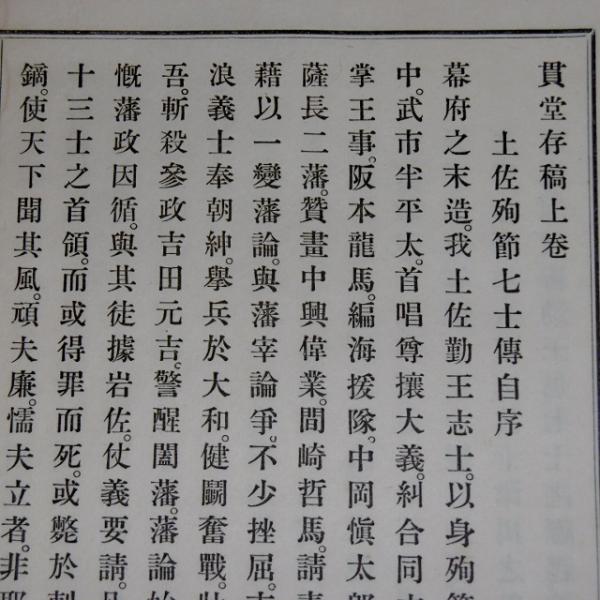 貫堂存稿上卷
土佐殉節七士傳自序
幕府之末造。我土佐勤王志士。以身殉節
中。武市半平太。首唱尊攘大義。糾合同
掌王事。阪本龍馬。編海援隊。中岡愼太郎
薩長二藩。贊畫中興偉業。間崎哲馬。請
藉以一變藩論。與藩宰論爭。不少挫屈。
浪義士奉朝紳。擧兵於大和。健鬭奮戰。
吾。斬殺參政吉田元吉。警醒闔藩。藩論始
慨藩政因循。與其徒據岩佐。仗義要請。
十三士之首領。而或得罪而死。或斃於
鏑。使天下聞其風。頑夫廉。懦夫立者。非